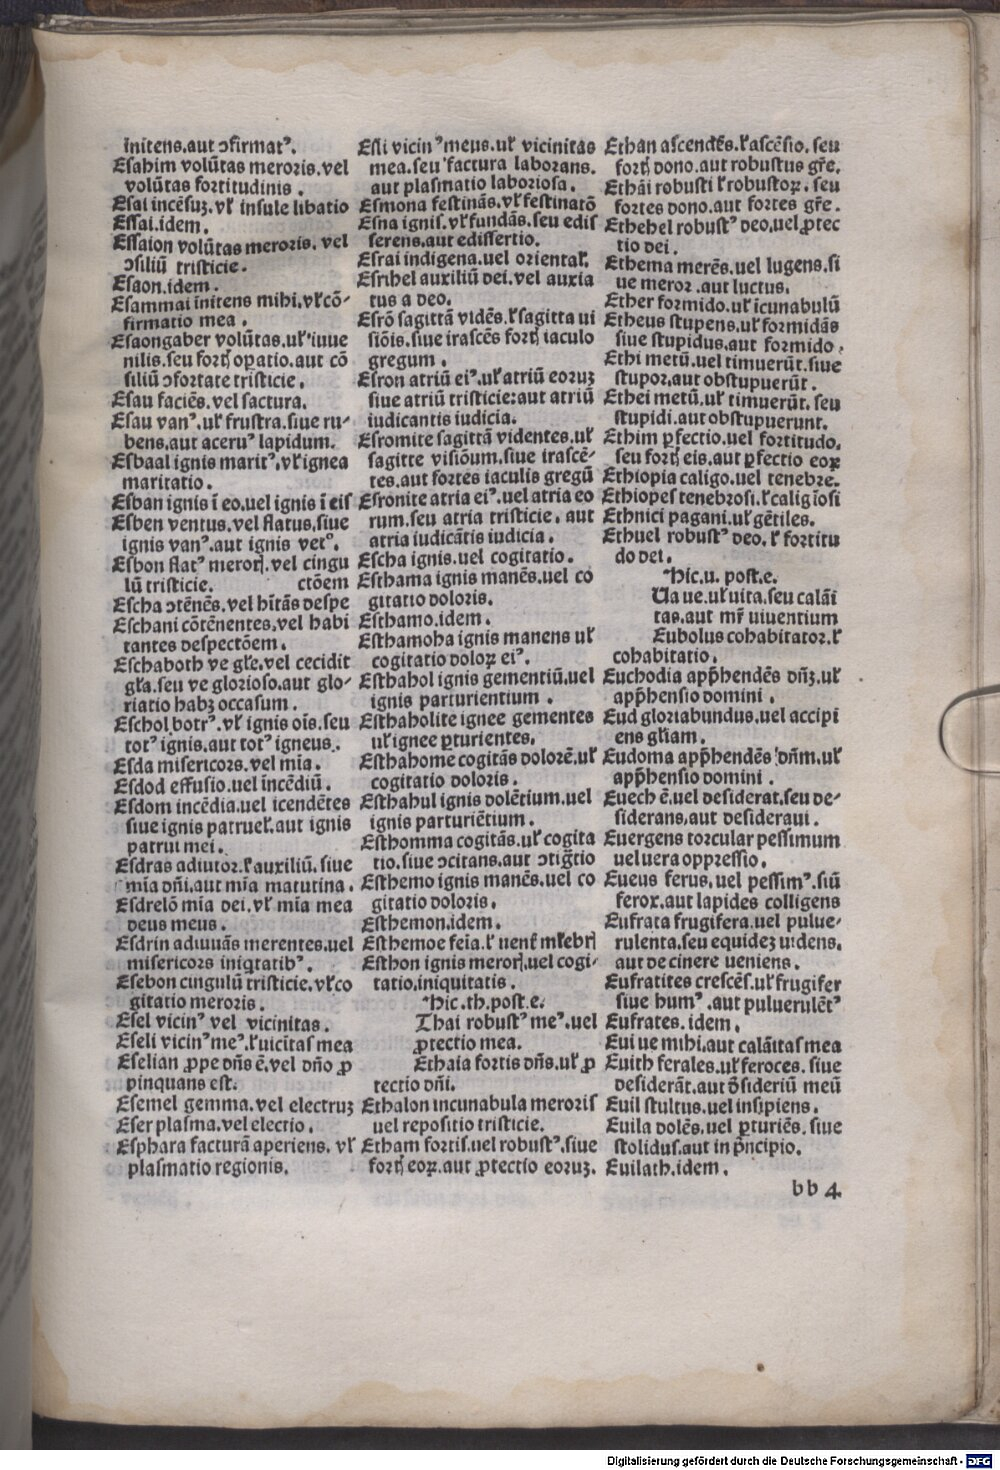 ĩnitens.aut ↄfirmatꝰ.
Esahim volũtas meroris.vel
volũtas fortitudinis.
Esai incẽsuʒ.vł insule libatio
Essai.idem.
Essaion volũtas meroris. vel
ↄsiliũ tristicie.
Esaon.idem.
Esammai ĩnitens mihi.vł cõ⸗
firmatio mea.
Esaongaber volũtas.uł iuue
nilis.seu fort opatio.aut cõ
siliũ ↄfortate tristicie.
Esau faciẽs.vel factura.
Esau vanꝰ.uł frustra.siue ru⸗
bens.aut aceruꝰ lapidum.
Esbaal ignis maritꝰ.vł ignea
maritatio.
Esban ignis ĩ eo.uel ignis ĩ eis
Esben ventus.vel flatus.siue
ignis vanꝰ.aut ignis vetꝰ.
Esbon flatꝰ meror.vel cingu
lũ tristicie. ctõem
Escha ↄtẽnẽs.vel hĩtãs despe
Eschani cõtẽnentes.vel habi
tantes despectõem.
Eschaboth ve głe.vel cecidit
gła.seu ve glorioso.aut glo⸗
riatio habʒ occasum.
Eschol botrꝰ.vł ignis oĩs.seu
totꝰ ignis.aut totꝰ igneus.
Esda misericors.vel mĩa.
Esdod effusio.uel ĩncẽdiũ.
Esdom incẽdia.uel icendẽtes
siue ignis patrueł.aut ignis
patrui mei.
Esdras adiutor.ł auxiliũ.siue
mĩa dñi.aut mĩa matutina.
Esdrelõ mĩa dei.vł mĩa mea
deus meus.
Esdrin adiuuãs merentes.uel
misericors iniqtatibꝰ.
Esebon cingulũ tristicie.vł co
gitatio meroris.
Esel vicinꝰ vel vicinitas.
Eseli vicinꝰ meꝰ.ł uicĩtas mea
Eselian ꝓpe dñs ẽ.vel dño ꝓ
pinquans est.
Esemel gemma.vel electruʒ
Eser plasma.vel electio.
Esphara facturã aperiens. vł
plasmatio regionis.
Esli vicinꝰ meus.uł vicinitas
mea.seu factura laborans.
aut plasmatio laboriosa.
Esmona festinãs.vł festinatõ
Esna ignis.vł fundãs.seu edis
serens.aut edissertio.
Esrai indigena.uel orientał.
Esrihel auxiliũ dei.vel auxia
tus a deo.
Esrõ sagittã vidẽs.ł sagitta ui
siõis.siue irascẽs fort iaculo
gregum.
Esron atriũ eiꝰ.uł atriũ eoruʒ
siue atriũ tristicie:aut atriũ
iudicantis iudicia.
Esromite sagittã videntes.uł
sagitte visiõum.siue irascẽ⸗
tes.aut fortes iaculis gregũ
Esronite atria eiꝰ.uel atria eo
rum.seu atria tristicie. aut
atria iudicãtis iudicia.
Escha ignis.uel cogitatio.
Esthama ignis manẽs.uel co
gitatio doloris.
Esthamo.idem.
Esthamoha ignis manens uł
cogitatio doloꝝ eiꝰ.
Esthahol ignis gementiũ.uel
ignis parturientium.
Esthaholite ignee gementes
uł ignee ꝑturientes.
Esthahome cogitãs dolorẽ.uł
cogitatio doloris.
Esthahul ignis dolẽtium.uel
ignis parturiẽtium.
Esthomma cogitãs.uł cogita
tio.siue ↄcitans.aut
Esthemo ignis manẽs.uel co
gitatio doloris.
Esthemon.idem.
Esthemoe feĩa.ł
Esthon ignis meror.uel cogi⸗
tatio.iniquitatis.
Hic.th.post.e.
Thai robustꝰ meꝰ.uel
ꝓtectio mea.
Ethaia fortis dñs.uł ꝓ
tectio dñi.
Ethalon incunabula meroris
uel repositio tristicie.
Etham fortis.uel robustꝰ.siue
fort eoꝝ.aut ꝓtectio eoruʒ.
Ethan ascendẽs.ł ascẽsio.seu
fort dono.aut robustus gře.
Ethãi robusti ł robustoꝝ.seu
fortes dono.aut fortes gře.
Ethebel robustꝰ deo.uel ꝓtec
tio dei.
Ethema merẽs.uel lugens.si
ue meror.aut luctus.
Ether formido.uł ĩcunabulũ
Etheus stupens.uł formidãs
siue stupidus.aut formido.
Ethi metũ.uel timuerũt.siue
stupor.aut obstupuerũt.
Ethei metũ.uł timuerũt.seu
stupidi.aut obstupuerunt.
Ethim ꝑfectio.uel fortitudo.
seu fort eis.aut ꝑfectio eoꝝ
Ethiopia caligo.uel tenebre.
Ethiopes tenebrosi.ł caligĩosi
Ethnici pagani.uł gẽtiles.
Ethuel robustꝰ deo.ł fortitu
do dei.
Hic.u. post.e.
Ua ue.uł uita.seu calãi
tas.aut mr̃ uiuentium
Eubolus cohabitator.ł
cohabitatio.
Euchodia app̃hendẽs dñʒ.uł
app̃hensio domini.
Eud gloriabundus.uel accipi
ens głiam.
Eudoma app̃hendẽs dñm.uł
app̃hensio domini.
Euech ẽ.uel desiderat.seu de⸗
siderans.aut desideraui.
Euergens torcular pessimum
uel uera oppressio.
Eueus ferus.uel pessimꝰ.siũ
ferox.aut lapides colligens
Eufrata frugifera.uel pulue⸗
rulenta.seu equideʒ uidens.
aut de cinere ueniens.
Eufratites crescẽs.uł frugifer
siue humꝰ.aut puluerulẽtꝰ
Eufrates.idem.
Eui ue mihi.aut calãitas mea
Euith ferales.uł feroces.siue
desiderãt.aut d̃sideriũ meũ
Euil stultus.uel insipiens.
Euila dolẽs.uel ꝑturiẽs.siue
stolidus.aut in p̃ncipio.
Euilath.idem.
bb 4.
Digitalisierung gefördert durch die Deutsche Forschungsgemeinschaft - DFG